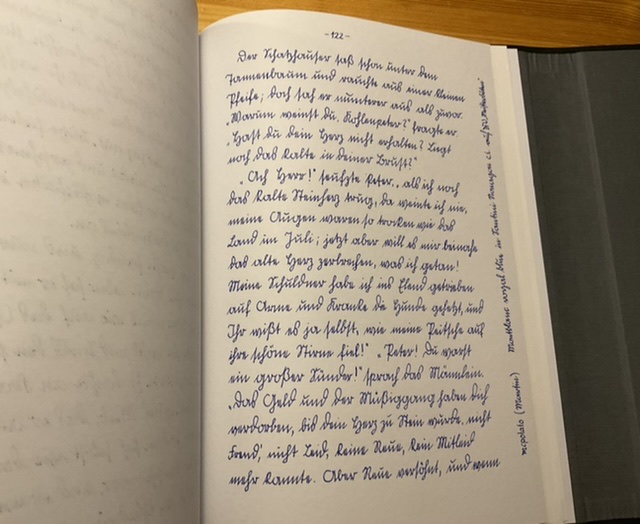 - 122 -
Der Schatzhauser saß schon unter dem
Tannenbaum und rauchte aus einer kleinen
Pfeife; doch sah er munterer aus als zuvor.
„Warum weinst du, Kohlenpeter?" fragte er.
„Hast du dein Herz nicht erhalten? Liegt
noch das kalte in deiner Brust?"
„Ach Herr!" seufzte Peter, „als ich noch
das kalte Steinherz trug, da weinte ich nie,
meine Augen waren so trocken wie das
Land im Juli; jetzt aber will es mir beinahe
das alte Herz zerbrechen, was ich getan!
Meine Schuldner habe ich ins Elend getrieben
auf Arme und Kranke die Hunde gehetzt, und
Ihr wißt es ja selbst, wie meine Peitsche auf
ihre schöne Stirne fiel!" „Peter! Du warst
ein großer Sünder!" sprach das Männlein.
„Das Geld und der Müßiggang haben dich
verdorben, bis dein Herz zu Stein wurde, nicht
Freud', nicht Leid, keine Reue, kein Mitleid
mehr kannte. Aber Reue versöhnt, und wenn
Montblanc royal blue in
(Manufus)